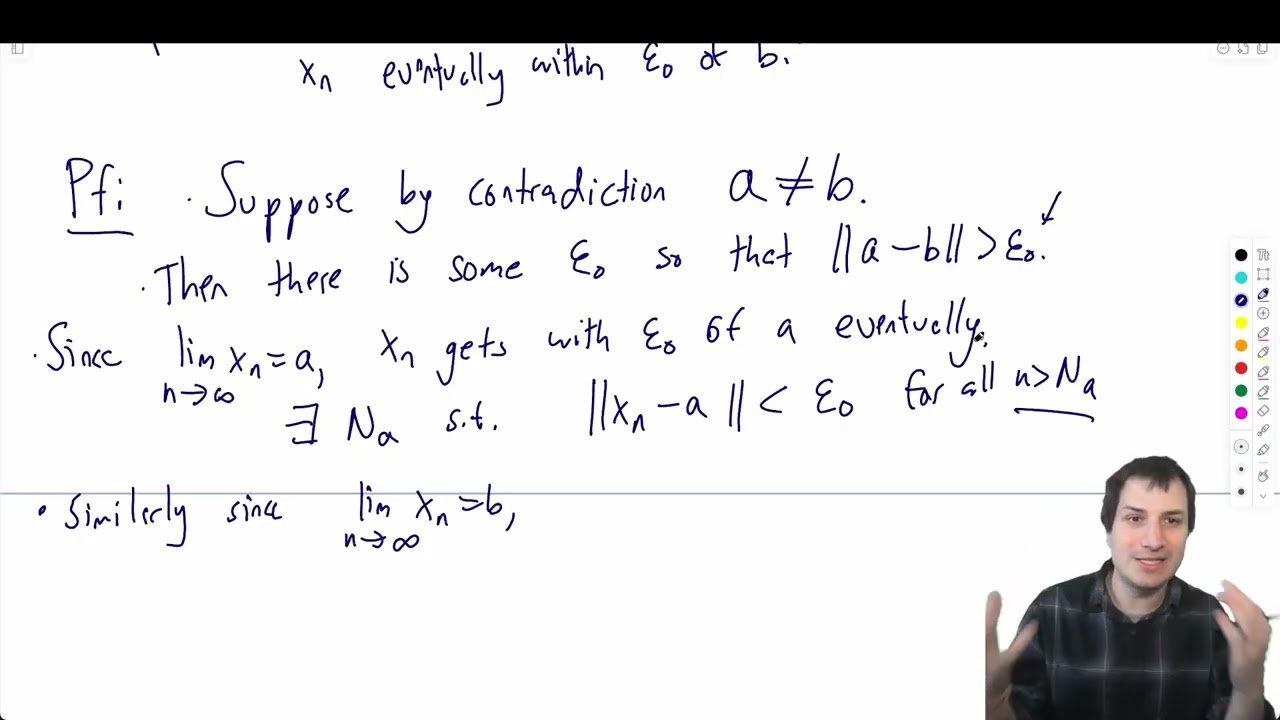 xn eventually within ε0 of b.
Pf: · Suppose by contradiction a ≠ b.
· Then there is some ε0 so that ||a − b|| > ε0.
· Since lim n→∞ xn = a, xn gets with ε0 of a eventually.
∃ Na s.t. ||xn − a|| < ε0 for all n > Na
• Similerly since lim n→∞ xn = b,